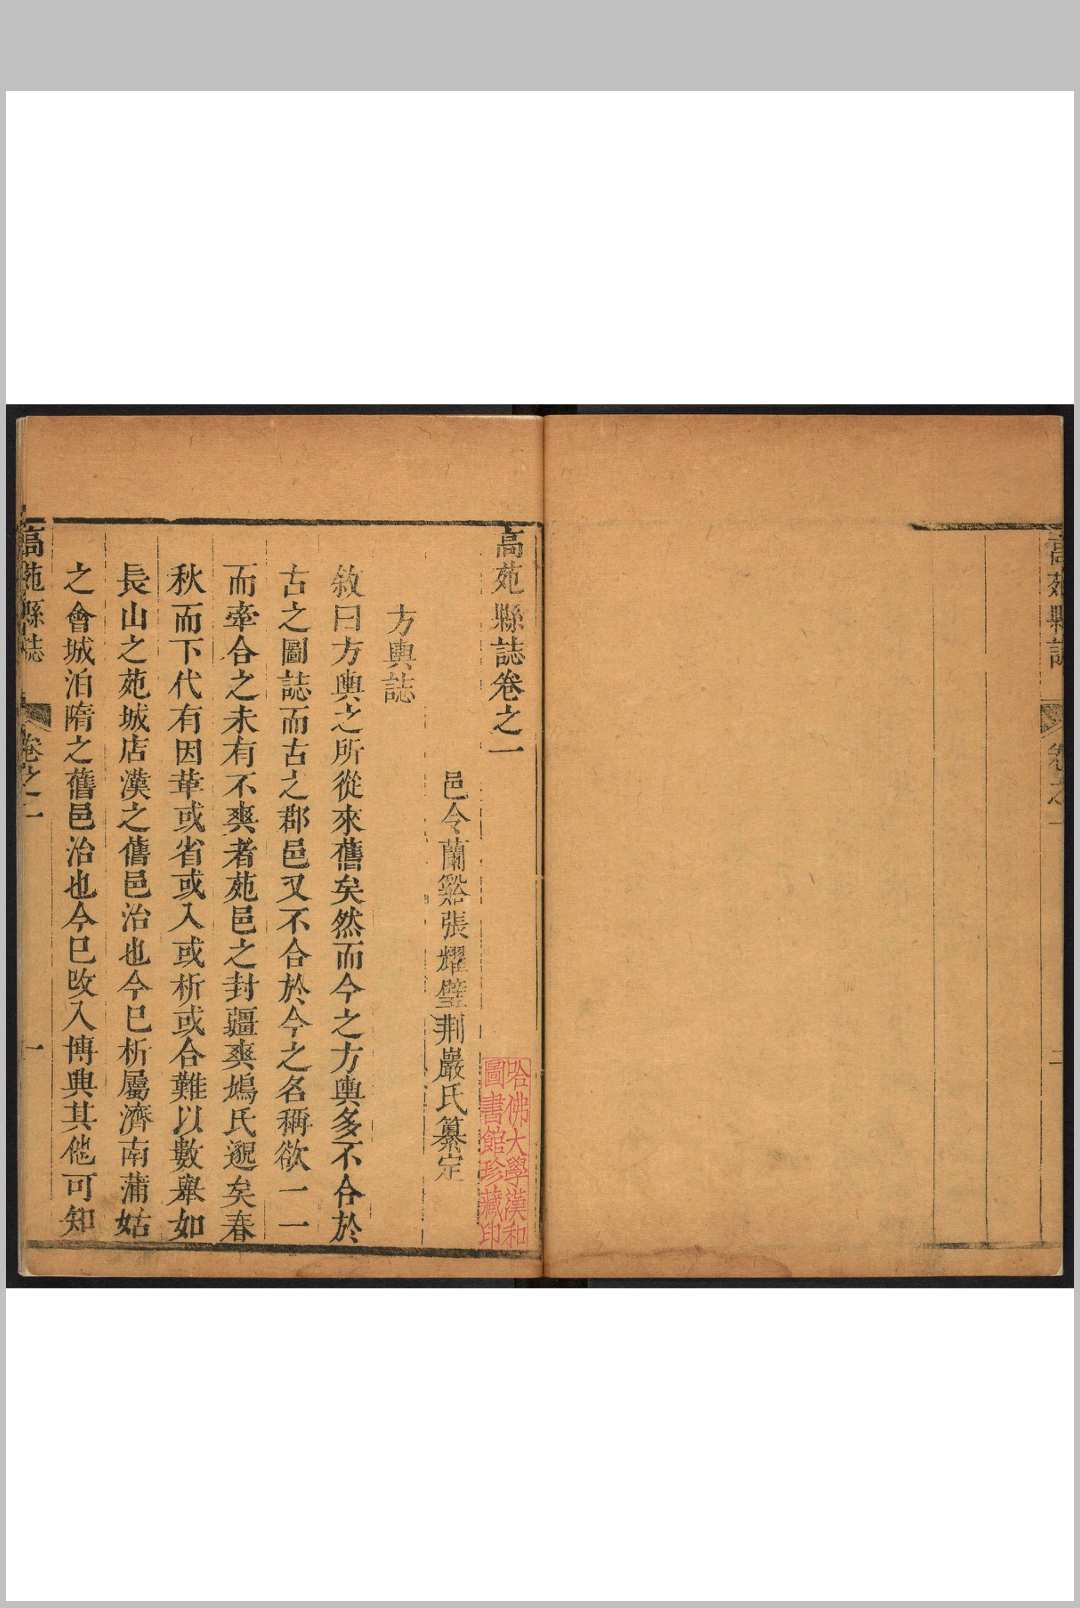 高苑縣誌
卷之一
二
高苑縣誌卷之一
邑令蘭谿張耀璧荆巖氏纂定
方輿誌
敘曰方輿之所從來舊矣然而今之方輿多不合於
古之圖誌而古之郡邑又不合於今之名稱欲一一
而牽合之未有不爽者苑邑之封疆爽鳩氏邈矣春
秋而下代有因革或省或入或析或合難以數舉如
長山之苑城店漢之舊邑治也今已析屬濟南蒲姑
之會城洎隋之舊邑治也今已改入博興其他可知
高苑縣誌
卷之一
一
哈佛大學漢和
圖書館珍藏印